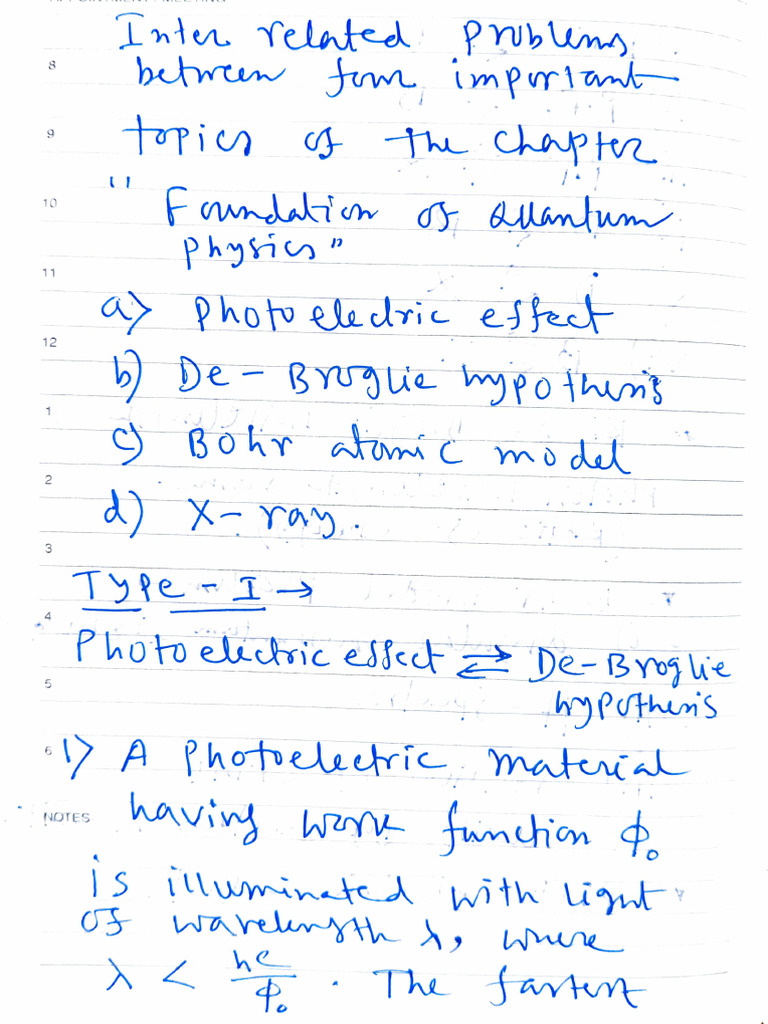 Inter related problems
8
between four important
9
topics of the chapter
10
" Foundation of Quantum
physics"
11
a) Photo electric effect
12
b) De - Broglie hypothesis
1
c) Bohr atomic model
2
d) X - ray.
3
Type - I →
4
Photo electric effect ⇌ De-Broglie
5
hypothesis
6
1) A photoelectric material
NOTES
having work function ϕ₀
is illuminated with light
of wavelength λ, where
λ < hc/ϕ₀ . The fastest